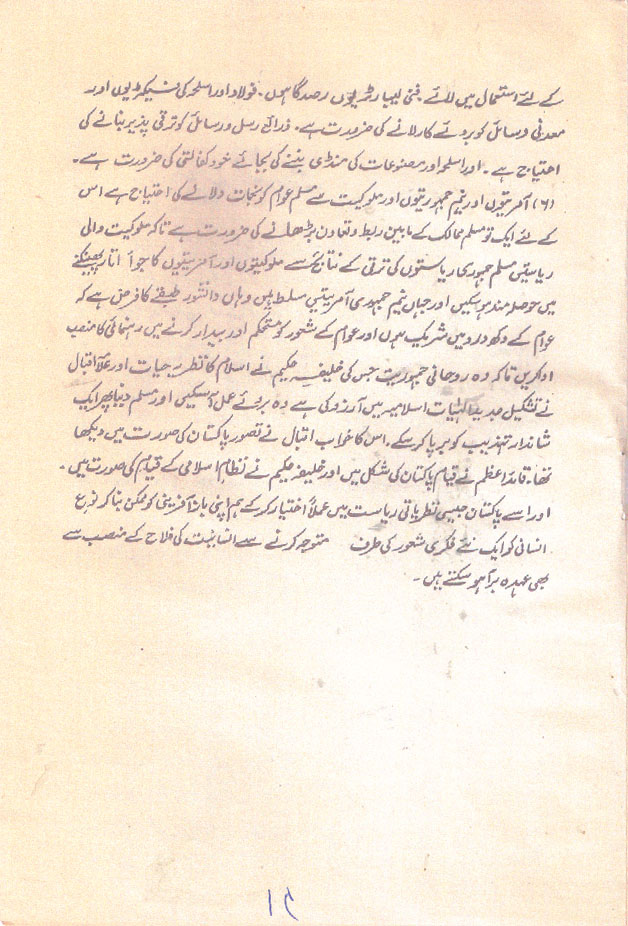 کے لئے استعمال میں لائے فنی لیبارٹریوں رصدگاہوں۔ فولاد اور اسلحہ کی فیکٹریوں اور
معدنی وسائل کو بروئے کار لانے کی ضرورت ہے۔ ذرائع رسل و رسائل کو ترقی پذیر بنانے کی
احتیاج ہے۔ اور اسلحہ اور مصنوعات کی منڈی بننے کی بجائے خود کفالتی کی ضرورت ہے۔
(۶) آمریتوں اور نیم جمہوریتوں اور ملوکیت سے مسلم عوام کو نجات دلانے کی احتیاج ہے اس
کے لئے ایک تو مسلم ممالک کے مابین ربط و تعاون بڑھانے کی ضرورت ہے تاکہ ملوکیت والی
ریاستیں مسلم جمہوری ریاستوں کی ترقی کے نتائج سے ملوکیتوں اور آمریتوں کا جوآ اتار پھینکنے
میں حوصلہ مند ہو سکیں اور جہاں نیم جمہوری آمریتیں مسلط ہیں وہاں دانشور طبقے کا فرض ہے کہ
عوام کے دکھ درد میں شریک ہوں اور عوام کے شعور کو مستحکم اور بیدار کرنے میں رہنمائی کا منصب
ادا کریں تاکہ وہ روحانی جمہوریت جس کی خلیفہ حکیم نے اسلام کا نظریہ حیات اور علامہ اقبال
نے تشکیل جدید الٰہیات اسلامیہ میں آرزو کی ہے وہ بروئے عمل آ سکیں اور مسلم دنیا پھر ایک
شاندار تہذیب کو برپا کر سکے۔ اس کا خواب اقبال نے تصور پاکستان کی صورت میں دیکھا
تھا۔ قائد اعظم نے قیام پاکستان کی شکل میں اور خلیفہ حکیم نے نظام اسلامی کے قیام کی صورت میں۔
اور اسے پاکستان جیسی نظریاتی ریاست میں عملاً اختیار کر کے ہم اپنی باز آفرینی کو ممکن بنا کر نوع
انسانی کو ایک نئے فکری شعور کی طرف متوجہ کرنے سے انسانیت کی فلاح کے منصب سے
بھی عہدہ برآ ہو سکتے ہیں۔